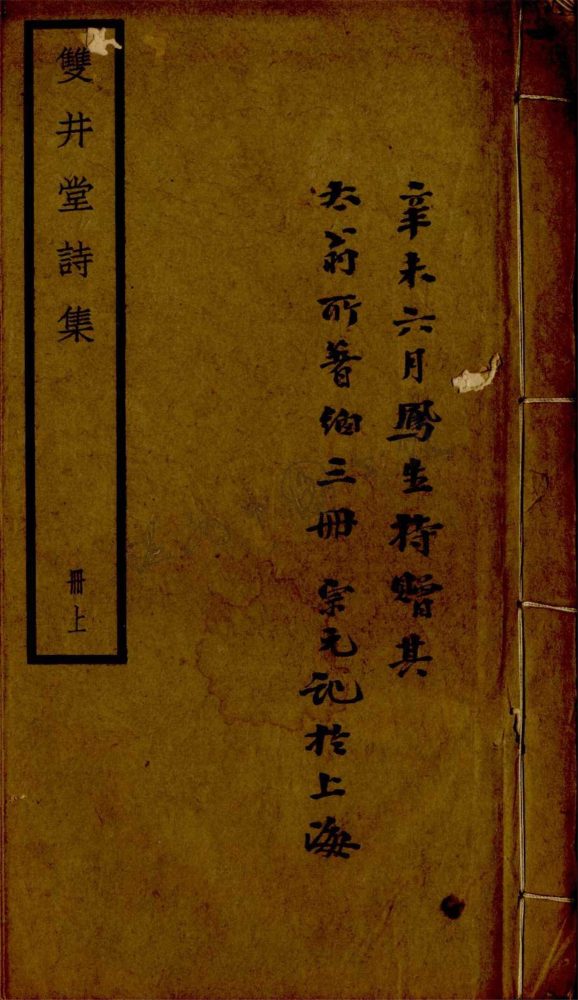 辛未六月鳳生持贈其
太翁所著三冊 宗元記於上海
雙井堂詩集
冊上